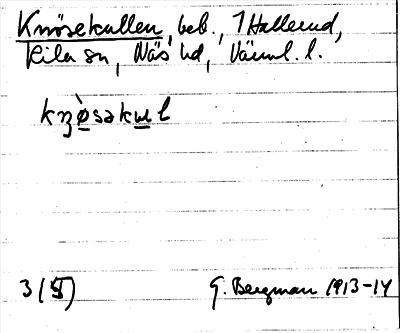 Knösekullen, beb., 1 Hallerud,
Kila sn, Näs hd, Värml. l.
knø̀sakɯl
3 (5)
G. Bergman 1913-14